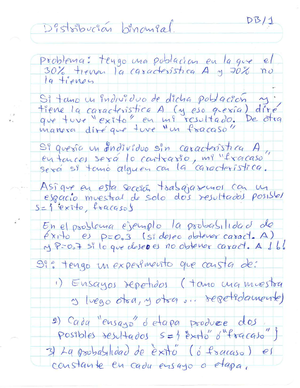 DB/1
Distribución binomial
Problema: tengo una poblacion en la que el
30% tienen la característica A y 70% no
la tienen
Si tomo un individuo de dicha población y
tiene la característica A (y eso quería) diré
que tuve "exito" en mi resultado. De otra
manera diré que tuve "un fracaso"
Si quería un individuo sin característica A,
entonces será lo contrario, mi "fracaso
será si tomo alguien con la característica.
Asi que en esta sección trabajaremos con un
espacio muestral de solo dos resultados posibles
s={éxito, fracaso}
En el problema ejemplo la probabilidad de
éxito es p=0.3 (si deseo obtener caract. A)
y p=0.7 si lo que deseo es no obtener caract. A
Si: tengo un experimento que consta de:
1) Ensayos repetidos (tomo una muestra
y luego otra, y otra ... repetidamente)
2) Cada "ensayo" o etapa produce dos
posibles resultados s={éxito ó "fracaso"}
3) La probabilidad de éxito (ó fracaso) es
constante en cada ensayo o etapa.